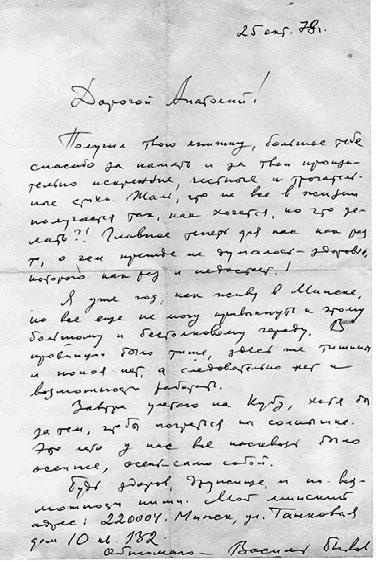 25 окт. 78г.
Дорогой Анатолий!
Получил твою книжку, большое тебе
спасибо за память и за твои пронзи-
тельно искренние, честные и трогатель-
ные стихи. Жаль, что не все в жизни
получается так, как хочется, но что де-
лать?! Главное теперь для нас как раз
то, о чем прежде не думалось – здоровье,
которого как раз и недостает!
Я уже год, как живу в Минске,
но все еще не могу привыкнуть к этому
большому и бестолковому городу. В
провинции было тише, здесь же тишины
и покоя нет, а следовательно нет и
возможности работать.
Завтра улетаю на Кубу, хотя бы
за тем, чтобы погреться на солнышке.
Это лето у нас все насквозь было
осеннее, осень – само собой.
Будь здоров, дружище, и по воз-
можности пиши. Мой минский
адрес: 220004. Минск, ул. Танковая
дом 10 кв. 132.
Обнимаю – Василь Быков